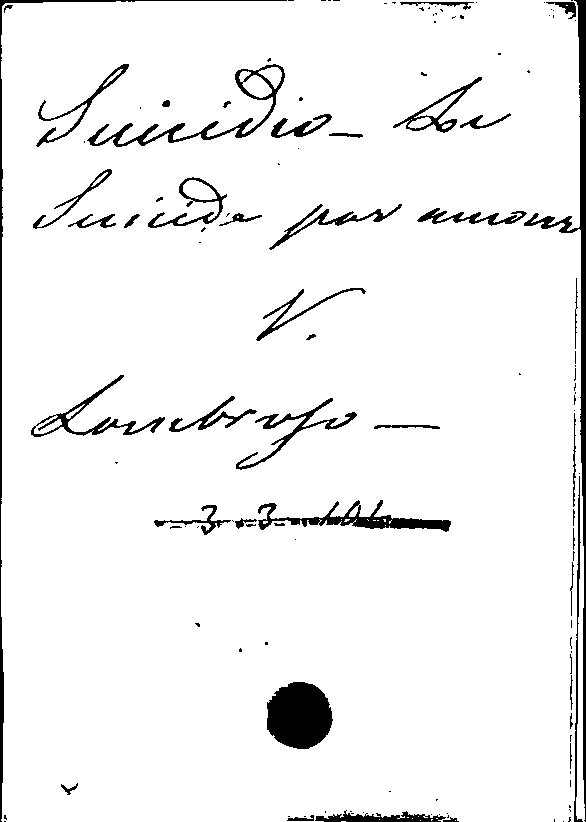 Suicidio — Le
Suicide par amour
V.
Lombroso —
3 3 101